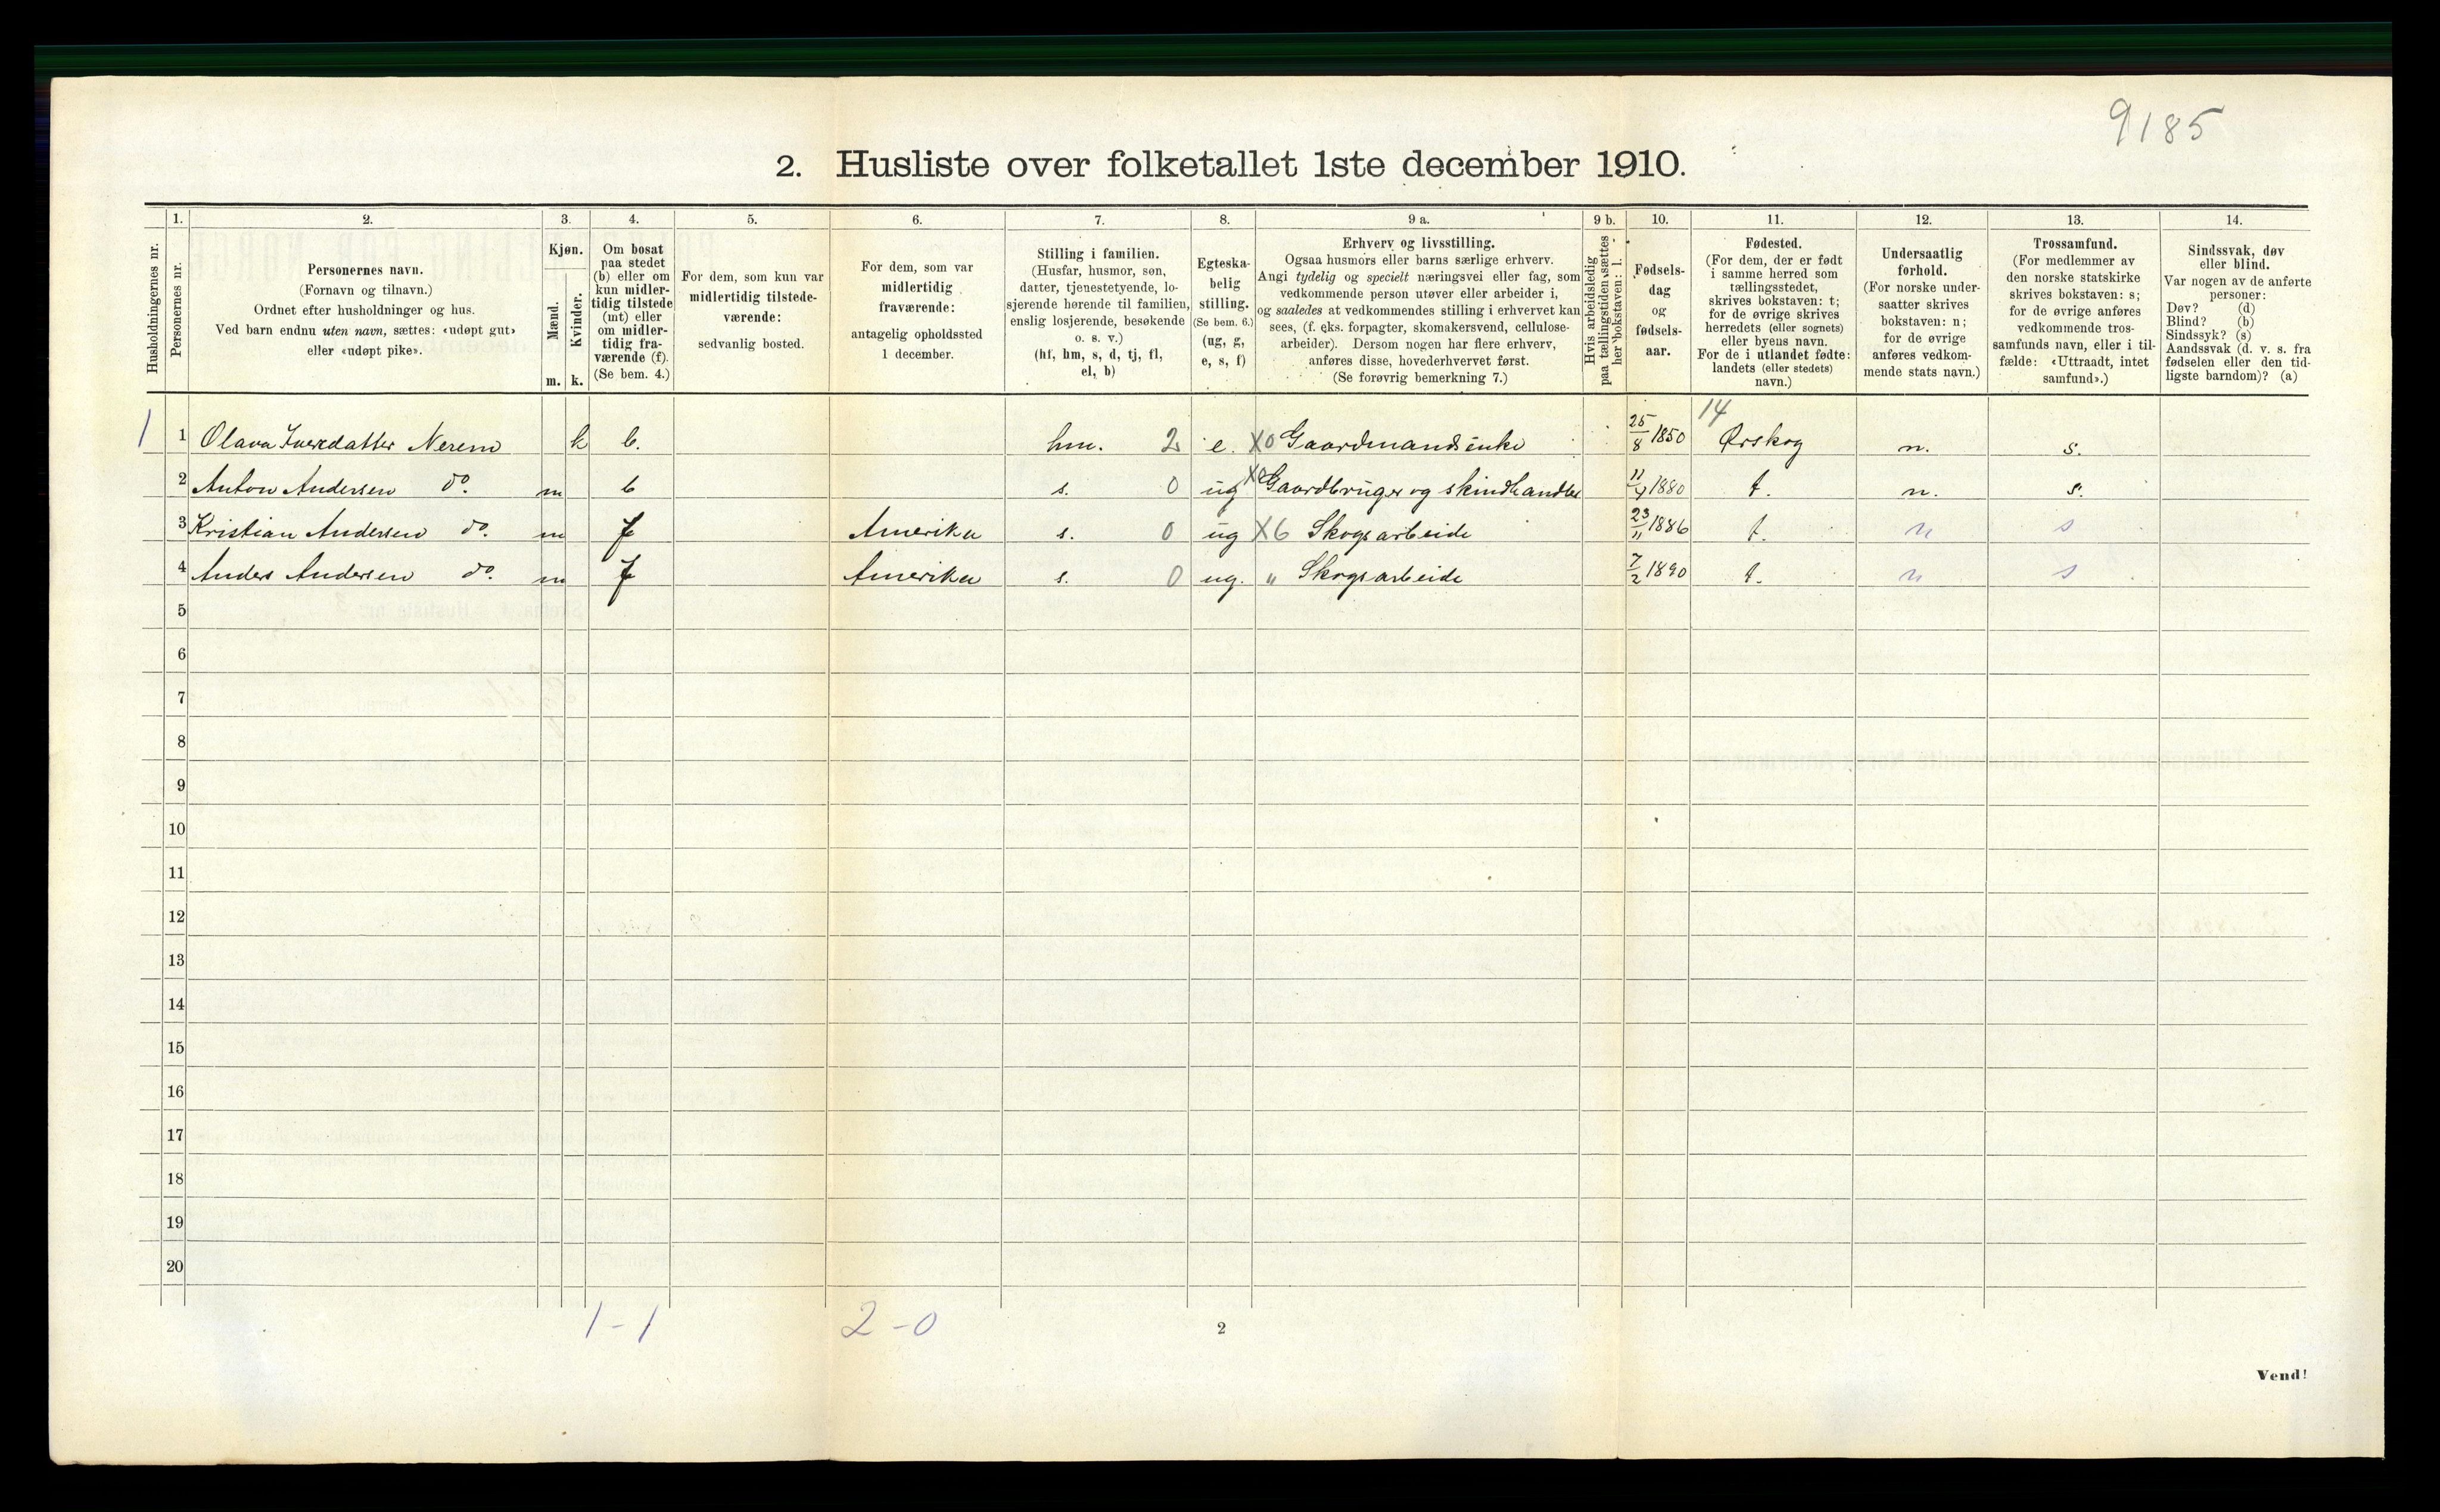 9185
2. Husliste over folketallet 1ste december 1910.
1. 2. 3. 4. 5. 6. 7. 8. 9 a. 9 b. 10. 11. 12. 13. 14.
Husholdningernes nr.
Personernes nr.
Personernes navn.
(Fornavn og tilnavn.)
Ordnet efter husholdninger og hus.
Ved barn endnu uten navn, sættes: «udøpt gut»
eller «udøpt pike».
Kjøn.
Mænd.
Kvinder.
m. k.
Om bosat
paa stedet
(b) eller om
kun midler-
tidig tilstede
(mt) eller
om midler-
tidig fra-
værende (f).
(Se bem. 4.)
For dem, som kun var
midlertidig tilstede-
værende:
sedvanlig bosted.
For dem, som var
midlertidig
fraværende:
antagelig opholdssted
1 december.
Stilling i familien.
(Husfar, husmor, søn,
datter, tjenestetyende, lo-
sjerende hørende til familien,
enslig losjerende, besøkende
o. s. v.)
(hf, hm, s, d, tj, fl,
el, b)
Egteska-
belig
stilling.
(Se bem. 6.)
(ug, g,
e, s, f)
Erhverv og livsstilling.
Ogsaa husmors eller barns særlige erhverv.
Angi tydelig og specielt næringsvei eller fag, som
vedkommende person utøver eller arbeider i,
og saaledes at vedkommendes stilling i erhvervet kan
sees, (f. eks. forpagter, skomakersvend, cellulose-
arbeider). Dersom nogen har flere erhverv,
anføres disse, hovederhvervet først.
(Se forøvrig bemerkning 7.)
Hvis arbeidsledig
paa tællingstiden, sættes
her bokstaven: l.
Fødsels-
dag
og
fødsels-
aar.
Fødested.
(For dem, der er født
i samme herred som
tællingsstedet,
skrives bokstaven: t;
for de øvrige skrives
herredets (eller sognets)
eller byens navn.
For de i utlandet fødte:
landets (eller stedets)
navn.)
Undersaatlig
forhold.
(For norske under-
saatter skrives
bokstaven: n;
for de øvrige
anføres vedkom-
mende stats navn.)
Trossamfund.
(For medlemmer av
den norske statskirke
skrives bokstaven: s;
for de øvrige anføres
vedkommende tros-
samfunds navn, eller i til-
fælde: «Uttraadt, intet
samfund».)
Sindssvak, døv
eller blind.
Var nogen av de anførte
personer:
Døv? (d)
Blind? (b)
Sindssyk? (s)
Aandssvak (d. v. s. fra
fødselen eller den tid-
ligste barndom)? (a)
14
1 1 Olava Iversdatter Nerem k b. hm. 2 e. X0 Gaardmandsenke 25/8 1850 Ørskog n. s.
2 Anton Andersen do. m b s. 0 ug X Gaardbruger og skindhandler 11/4 1880 t. n. s.
3 Kristian Andersen do. m f Amerika s. 0 ug X6 Skogsarbeide 23/11 1886 t. n s
4 Anders Andersen do. m f Amerika s. 0 ug. " Skogsarbeide 7/2 1890 t. n s
5
6
7
8
9
10
11
12
13
14
15
16
17
18
19
20
1-1 2-0
2
Vend!